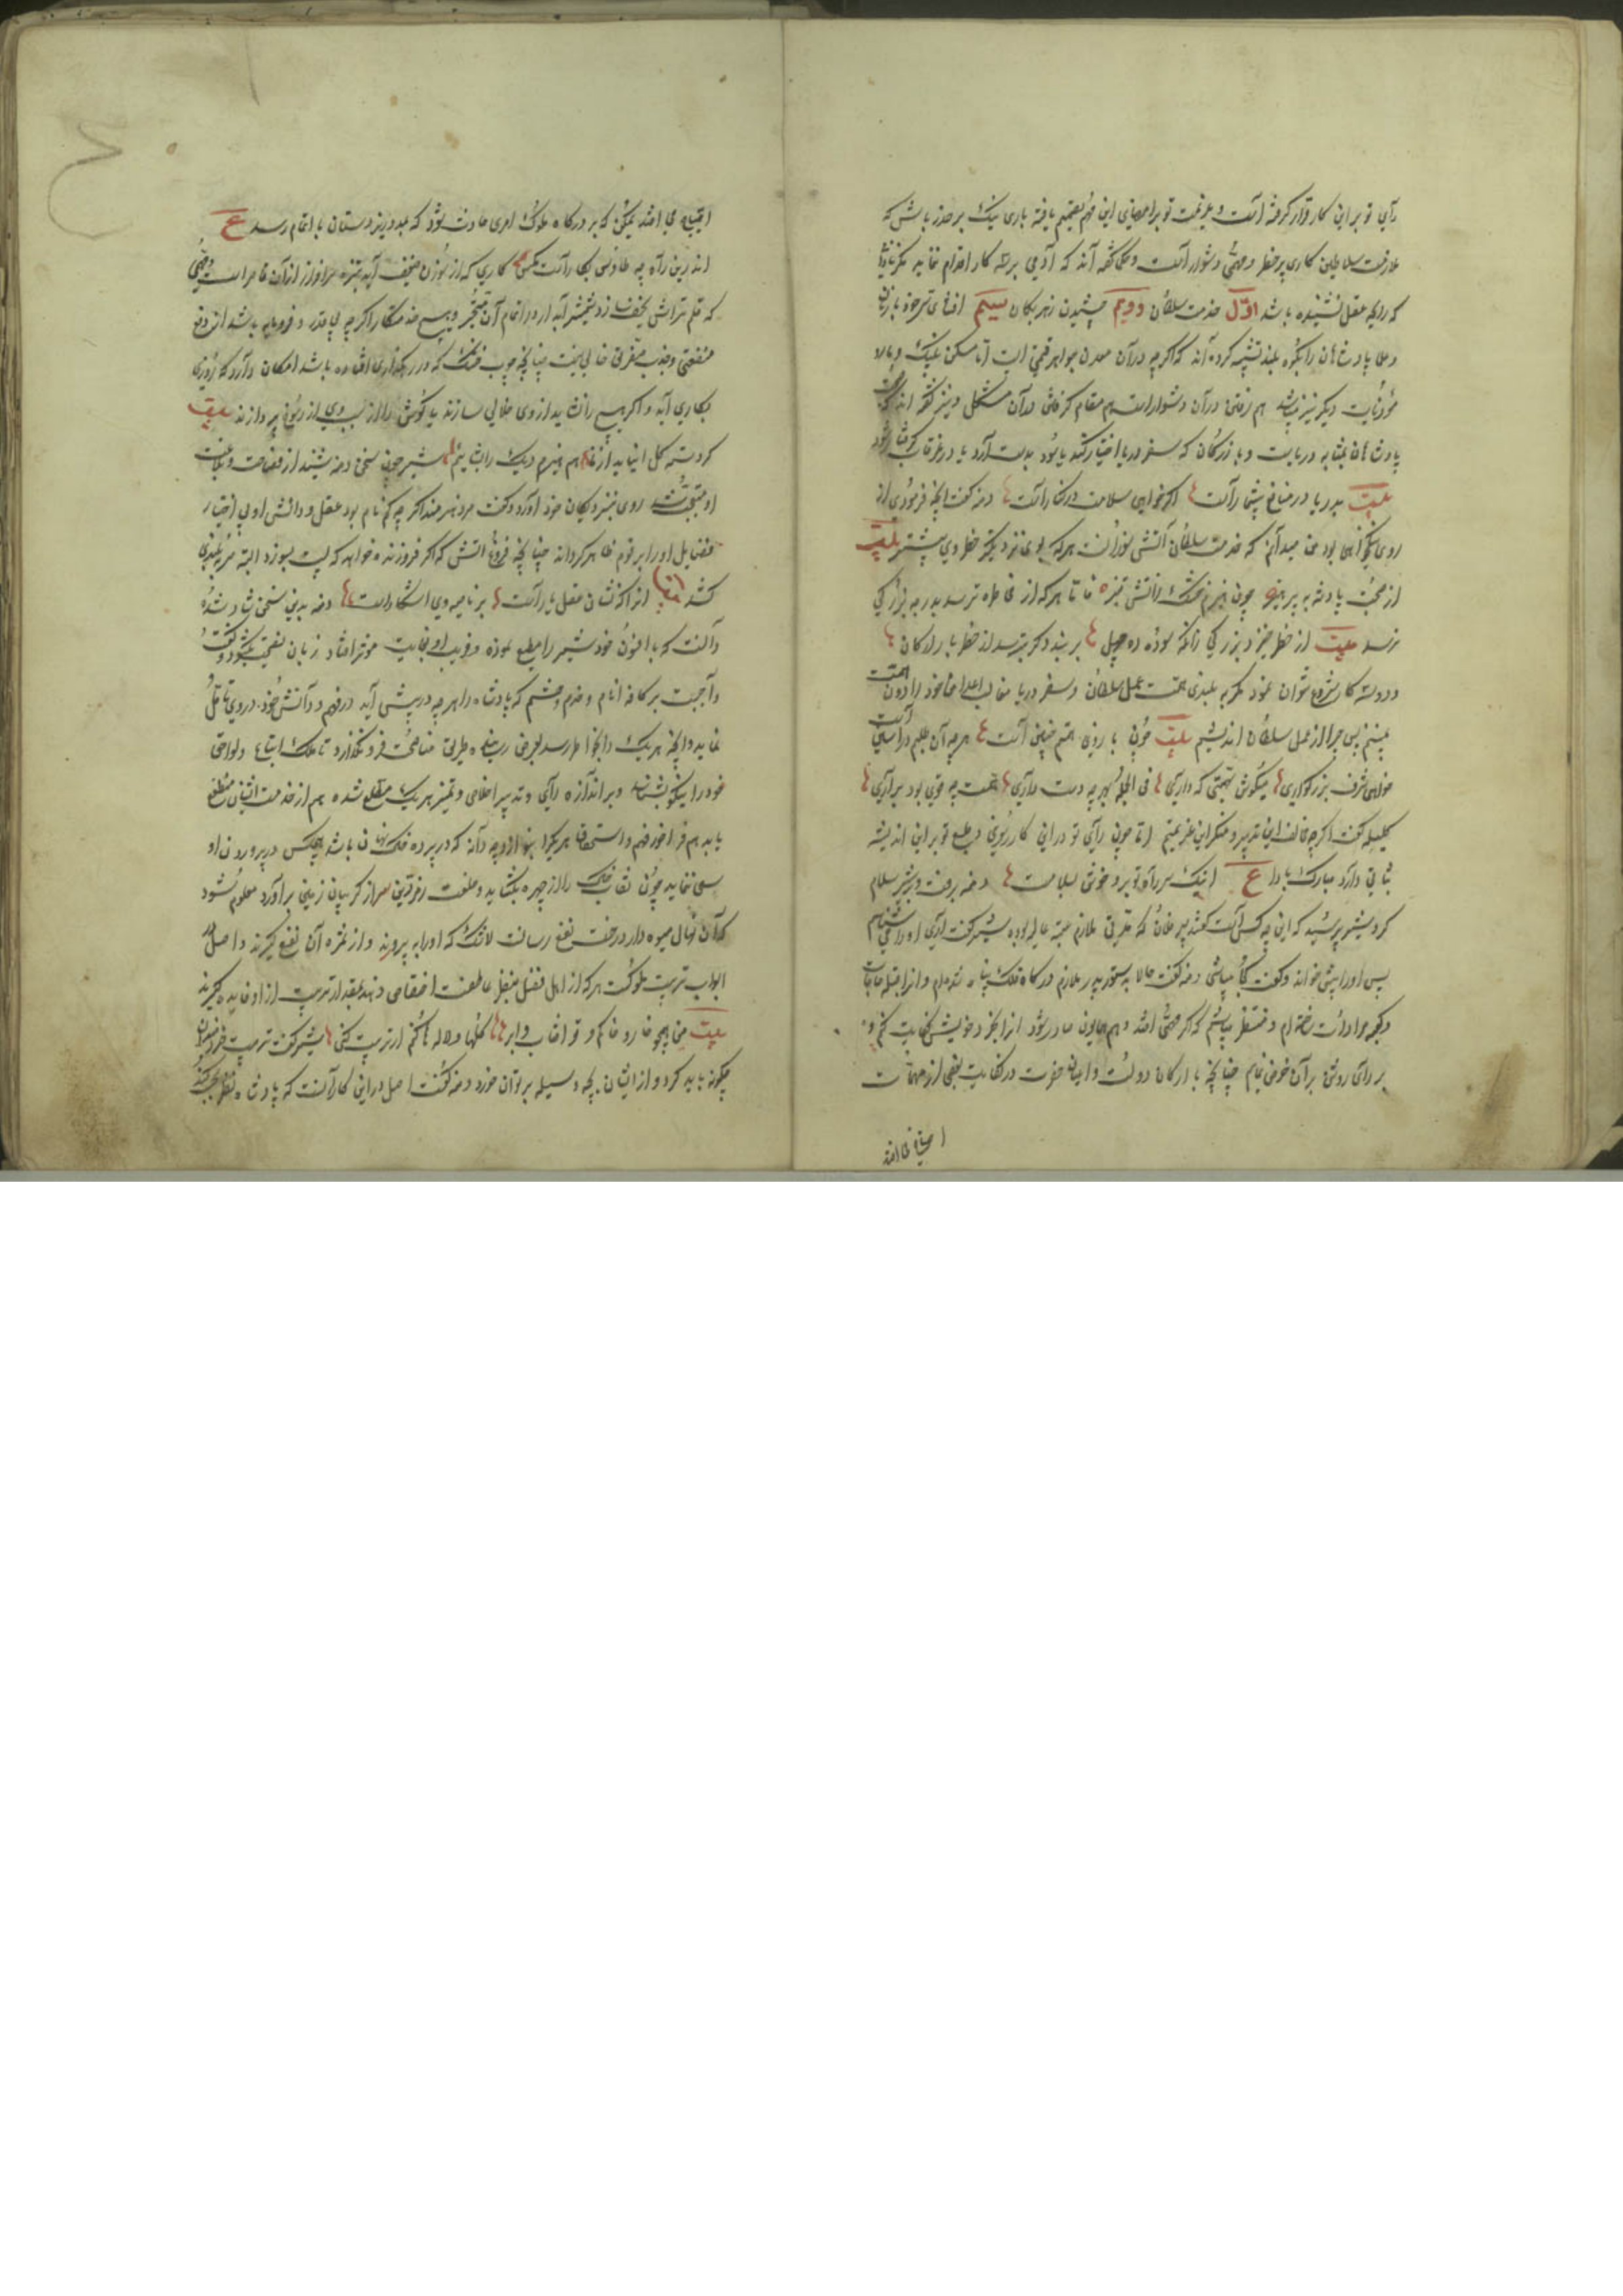 رای تو برین کار قرار گرفته است و عزیمت تو بر امضای این مهم تصمیم یافته باری نیک بر حذر باش که
ملازمت سلاطین کاری پر خطر و مهمی دشوار است و حکما گفته اند که آدمی بر سه کار اقدام ننماید مگر نادانی
که رایحه عقل نشنیده باشد اول خدمت سلطان دویم چشیدن زهر بکمان سیم افشای سر خود با زنان
و حکما پادشاهان را بکوه بلند تشبیه کرده اند که اگر چه در آن معدن جواهر قیمتی است اما مسکن پلنک و مار و
موذیات دیگر نیز باشد هم رفتن در آن دشوار است هم مقام کردن در آن مشکل و نیز گفته اند که
پادشاهان بمثابه دریاست و بازرگان که سفر دریا اختیار کند یا سود بدست آرد یا در غرقاب گرفتار شود
بیت بدریا در منافع بیشمار است اگر خواهی سلامت در کنار است دمنه گفت آنچه فرمودی از
روی نیکخواهی بود من میدانم که خدمت سلطان آتش سوزانست هر که بوی نزدیکتر خطر وی بیشتر بیت
از صحبت پادشه بپرهیز چون هیزم خشک ز آتش تیز اما هر که از مخاطره ترسد بدرجه بزرگی
نرسد بیت از خطر خیزد بزرگی زانکه سوده ده چهل بر نبندد گر بترسد از خطر بازارگان
و در سه کار شروع نتوان نمود مگر به بلندی همت عمل سلطان و سفر دریا و مغالبه اعدا من خود را دون همت
نمی‌بینم پس چرا از عمل سلطان اندیشم بیت چون بازوی همتم چنین است هر چه آن طلبم در آستین است
خواهی شرف بزرگواری میکوش بهمتی که داری فی الجمله بهر چه دست داری همت چو قوی بود بر آری
کلیله گفت اگر چه مخالف این تدبیر و منکر این عزیمتم اما چون رای تو در این کار رسوخی و طبع تو بر این اندیشه
ثباتی دارد مبارک باد ع اینک سر راه تو برو خوش بسلامت دمنه برفت و بر شیر سلام
کرد شیر پرسید که این چه کس است گفتند پسر فلان که مدتی ملازم عتبه عالیه بوده شیر گفت آری او را میشناسم
پس او را پیش خواند و گفت کجا میباشی دمنه گفت حالا بدستور پدر ملازم درگاه فلک پناه شده‌ام و آنرا قبله حاجات
و کعبه مرادات ساخته‌ام و منتظر میباشم که اگر مهمی افتد و حکم همایون صادر شود آنرا بخرد خویش کفایت کنم و
برای روشن در آن خوض نمایم چنانچه بارکان دولت و اعیان حضرت در کفایت بعضی از مهمات
احتیاج می افتد
احتیاج می افتد ممکن که بر درگاه ملوک امری حادث شود که بمدد زیردستان باتمام رسد ع
اندرین راه چو طاوس بکار است مگس کاری که از سوزن ضعیف آید نیزه سرافراز از آن قاصر است و مهمی
که قلم تراش نحیف سازد شمشیر آبدار در اتمام آن متحیر و هیچ خدمتکار اگر چه بی قدر و فرومایه باشد از دفع
مضرتی و جذب منفعتی خالی نیست چنانچه چوب خشک که در رهگذاری افتاده باشد امکان دارد که روزی
بکاری آید و اگر هیچ را نشاید از وی خلالی سازند یا گوش را از وسخ بسبب وی از ریم بپردازند بیت
گر دسته گل نیاید از ما هم هیزم دیک را بشائیم شیر چون سخن دمنه شنید از فصاحت و بلاغت
او متعجب شد روی بنزدیکان خود آورد و گفت مرد هنرمند اگر چه گمنام بود عقل و دانش او بی اختیار
فضایل او را بر قوم ظاهر گرداند چنانچه فروغ آتش که اگر فروزنده خواهد که پست بسوزد البته سر به بلندی
کشد آنرا که نشان عقل یار است بر ناصیه وی آشکار است دمنه بدین سخن شاد شد و
دانست که افسون خود شیر را مطیع نموده و فریب او بغایت موثر افتاد زبان نصیحت بگشود و گفت
واجبست بر کافه انام و خدم و حشم که پادشاه را هر چه در پیش آید در فهم و دانش خود در وی تامل
نماید و آنچه هر یک را بخاطر رسد بعرض رسانند و طریق مناصحت فرو نگذارد تا ملک اتباع و لواحق
خود را نیکو بشناسد و بر اندازه رای و تدبیر و اخلاص و تمیز هر یک مطلع شده هم از خدمت ایشان منتفع
یابد هم فراخور فهم و استحقاق هر یک را بنوازد چه دانه که در پرده خاک نهان باشد هیچکس در پروردن او
سعی ننماید چون نقاب خاک را از چهره بگشاید و با خلعت زمردین سر از گریبان زمین برآورد معلوم شود
که آن نهال میوه دار درخت نفع رسانست لاشک که او را بپرورند و از ثمره آن نفع گیرند و اصل در
ابواب تربیت ملوکست هر که از اهل فضل بنظر عاطفت اختصاص دهند بمقدار تربیت از او فایده گیرند
بیت من همچو خار و خاکم و تو آفتاب و ابر گلها و لاله ها کنم ار تربیت کنی شیر گفت تربیت خردمندان
چگونه باید کرد و از ایشان بچه وسیله بر توان خورد دمنه گفت اصل در این کار آنست که پادشاه نظر بحسب کند